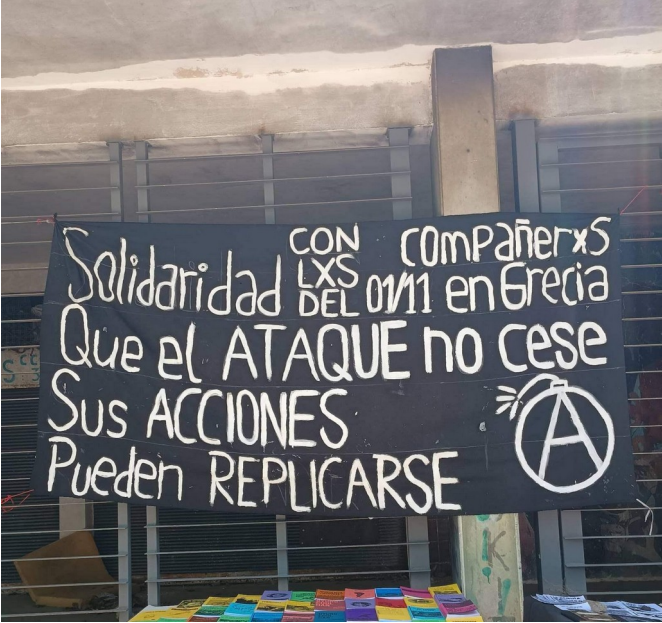 Solidaridad CON LXS DEL compañerxs
01/11 en Grecia
Que el ATAQUE no cese
Sus ACCIONES
Pueden REPLICARSE
A